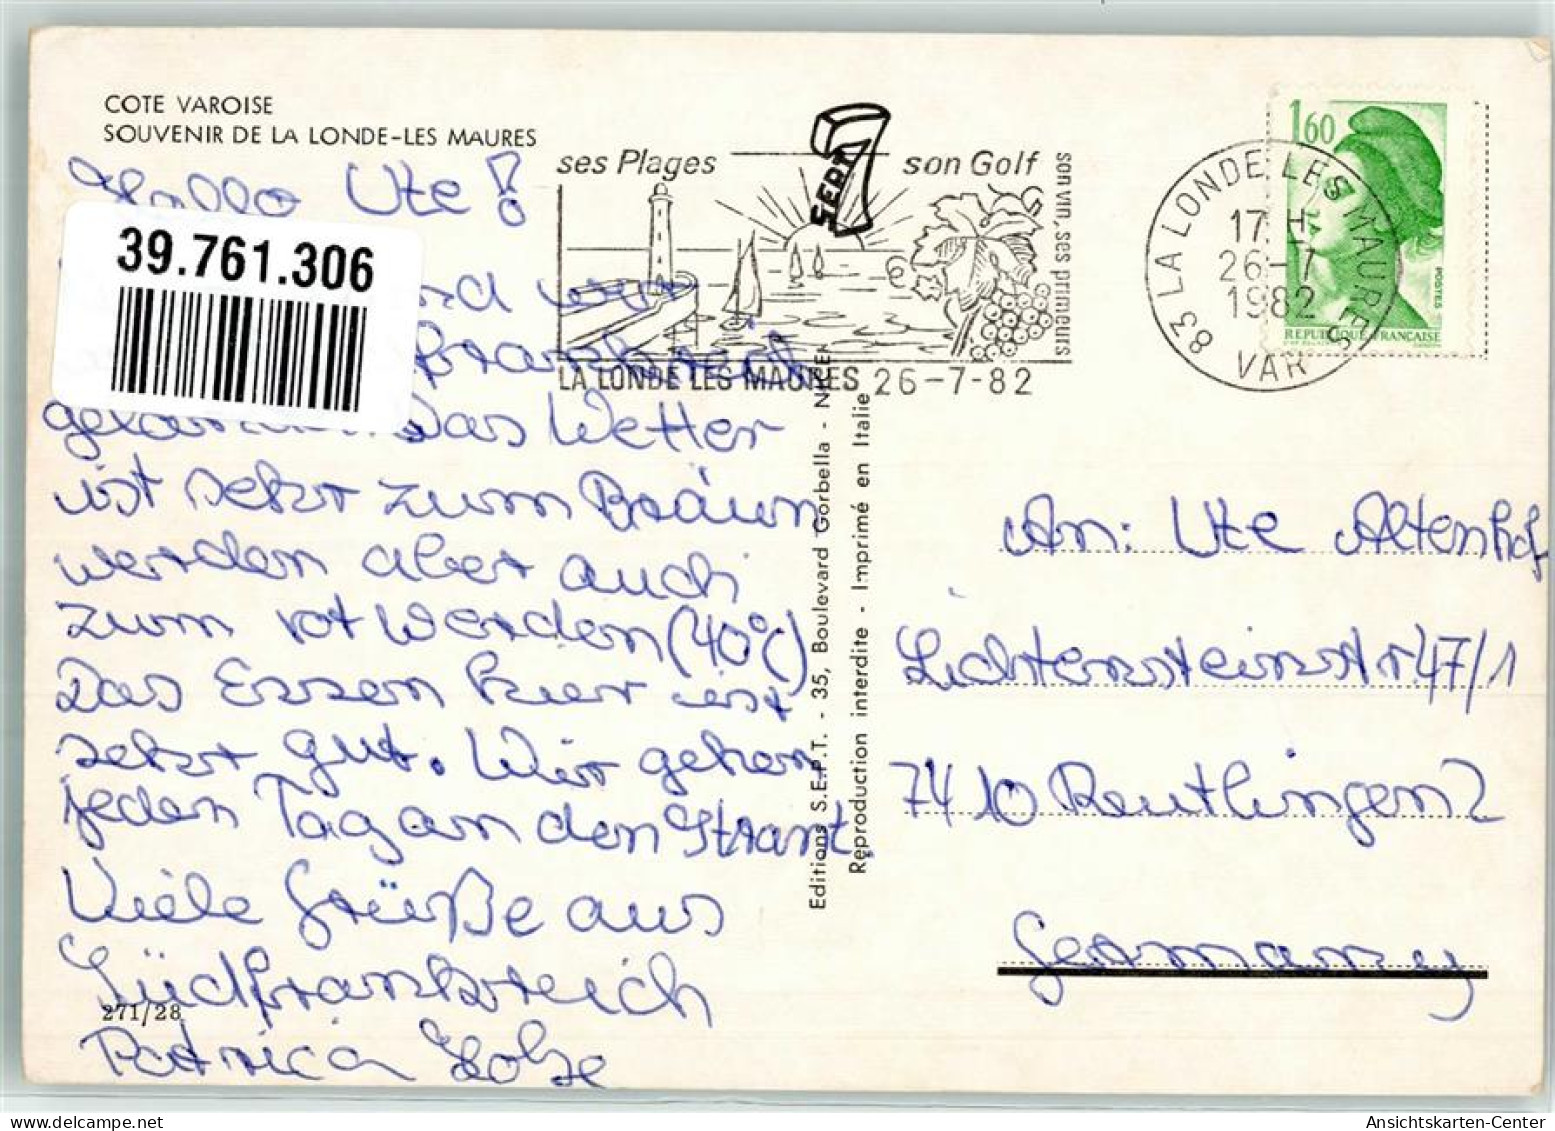 COTE VAROISE
SOUVENIR DE LA LONDE-LES MAURES
Hallo Ute!
39.761.306
sind wir
Frankreich
gelandet. Das Wetter
ist sehr zum Bräun
werden aber auch
zum rot werden (40°C)
Das Essen hier ist
sehr gut. Wir gehen
jeden Tag an den Strant.
Viele Grüße aus
Südfrankreich
Patricia
271/28
ses Plages
son Golf
son vin, ses primeurs
LA LONDE LES MAURES 26-7-82
7
SEPT
Editions S.E.P.T. - 35, Boulevard Gorbella - NICE
Reproduction interdite - Imprimé en Italie
83 LA LONDE LES MAURES
17 H
26-7
1982
VAR
1,60
POSTES
REPUBLIQUE FRANÇAISE
An: Ute Altenhof
Lichtensteinstr 47/1
7410 Reutlingen 2
Germany
Ansichtskarten-Center